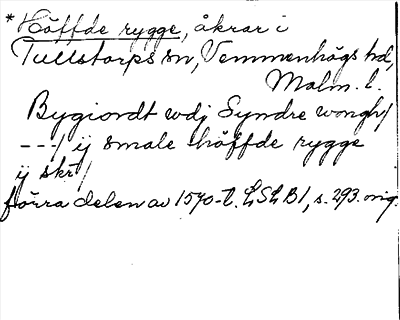 *Höffde rygge, åkrar i
Tullstorps sn, Vemmenhögs hd,
Malm. l.
Bygiordt wdj Syndre wongh/
---/ ij smale höffde rygge
ij skr/
förra delen av 1570-t. LSLB1, s. 293. orig.